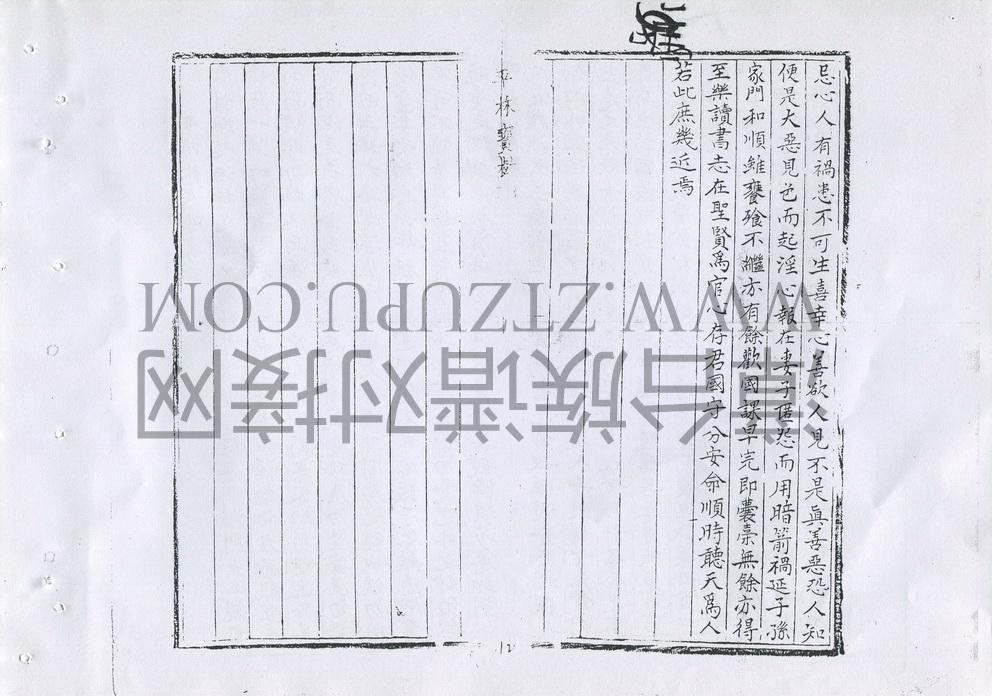 忌心人有禍患不可生喜幸心善欲人見不是眞善惡恐人知
便是大惡見色而起淫心報在妻子匿怨而用暗箭禍延子孫
家門和順雖饔飧不繼亦有餘歡國課早完即囊橐無餘亦得
至樂讀書志在聖賢爲官心存君國守分安命順時聽天爲人
若此庶幾近焉
林寶樹
12
WWW.ZTZUPU.COM
台族谱对接网